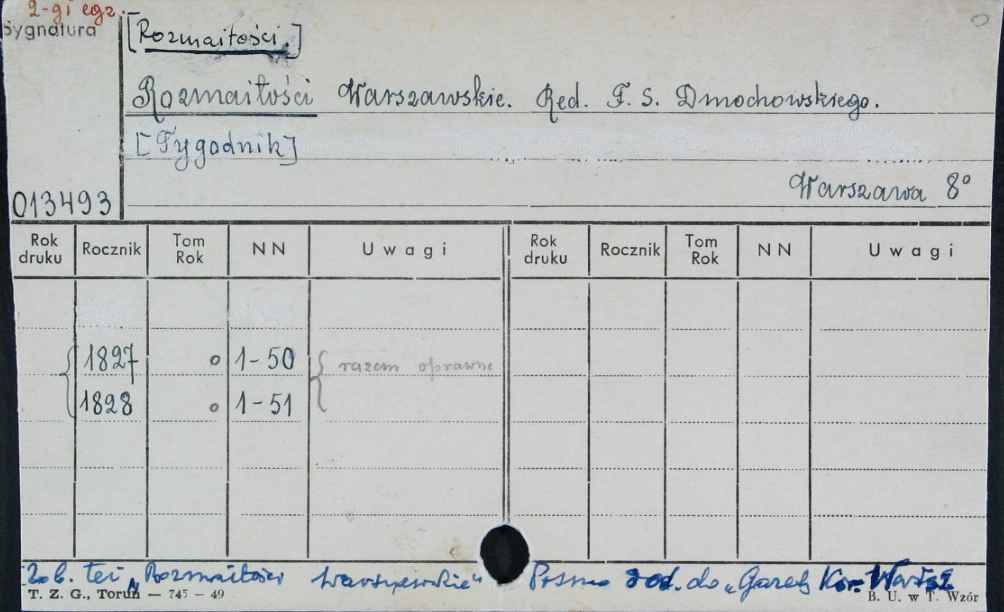 2-gi egz.
Sygnatura
[Rozmaitości.]
Rozmaitości Warszawskie. Red. F. S. Dmochowskiego.
[Tygodnik]
Warszawa 8°
013493
Rok druku Rocznik Tom Rok NN Uwagi Rok druku Rocznik Tom Rok NN Uwagi
1827 o 1-50 razem oprawne
1828 o 1-51
Zob. też „Rozmaitości Warszawskie" Pismo dod. do „Gazety Kor. Warsz
T. Z. G., Toruń — 745 — 49
B. U. w T. Wzór